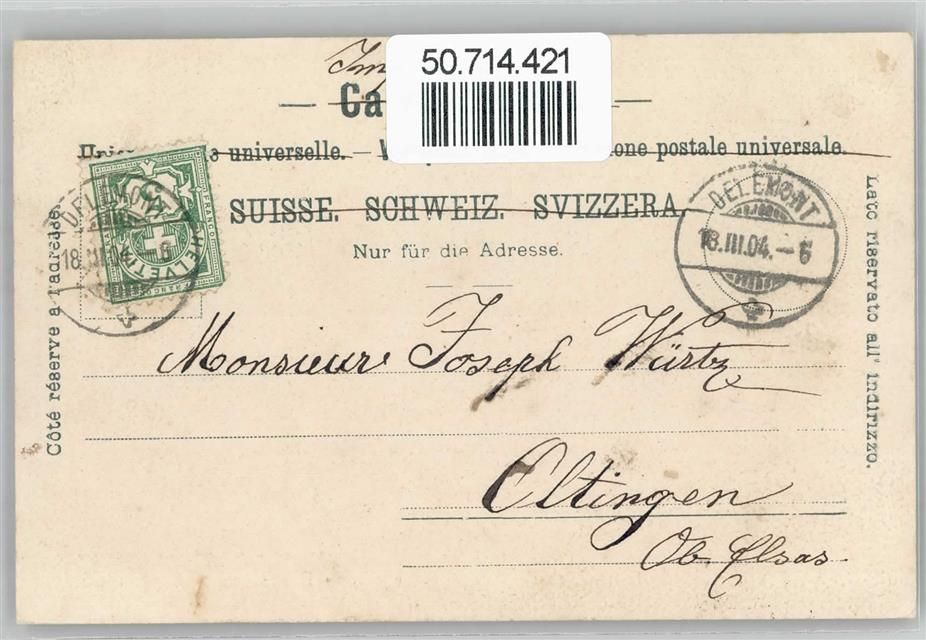 50.714.421
Imp
Ca
universelle. — one postale universale.
SUISSE. SCHWEIZ. SVIZZERA.
Nur für die Adresse.
Côté réservé à l'adresse.
Lato riservato all' indirizzo.
DELEMONT
18.III.04. - 6
HELVETIA
FRANCO
DELEMONT
18.III.04. - 6
Monsieur Joseph Würtz
Oltingen
Ob. Elsas